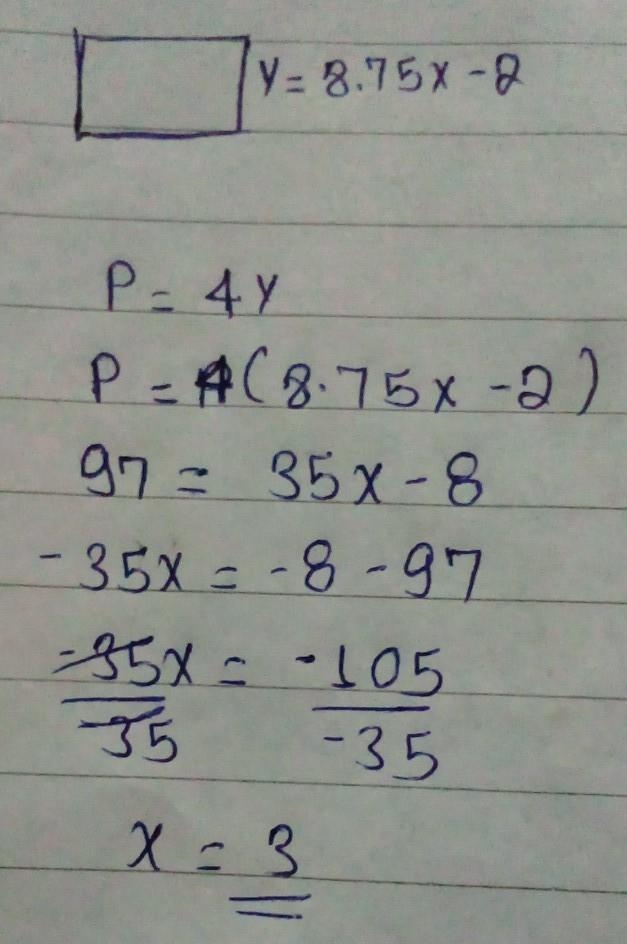 y = 8.75x - 2
P = 4y
P = 4(8.75x - 2)
97 = 35x - 8
-35x = -8 - 97
-35x = -105
-35 -35
x = 3